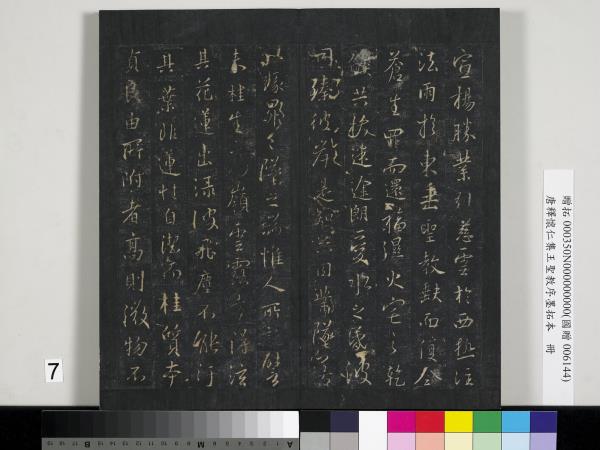 宣揚勝業引慈雲於西極注
法雨於東垂聖教缺而復全
蒼生罪而還福濕火宅之乾
焰共拔迷途朗愛水之昏波
同臻彼岸是知惡因業墜善
以緣昇昇墜之端惟人所託譬
夫桂生高嶺雲露方得泫
其花蓮出淥波飛塵不能汙
其葉非蓮性自潔而桂質本
貞良由所附者高則微物不
贈拓 000350N000000000(國贈 006144)
唐釋懷仁集王聖教序墨拓本 冊
7